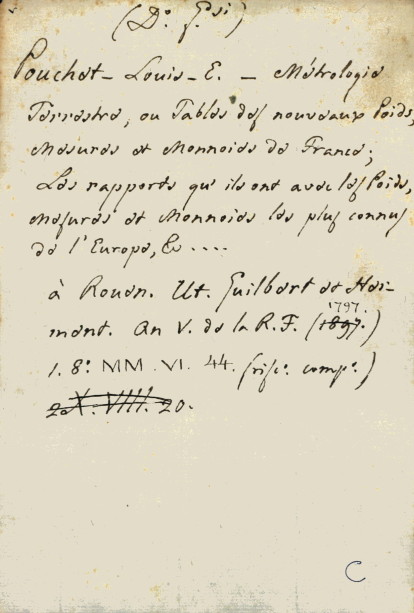 (Do. Gsi)
Pouchet - Louis - E. - Métrologie
Terrestre, ou Tables des nouveaux Poids,
Mesures et Monnoies de France;
Les rapports qu'ils ont avec les Poids,
Mesures et Monnoies les plus connus
de l'Europe, &c ....
à Rouen. Ut. Guilbert et Her-
ment. An V. de la R. F. (1897.)
1797.
1. 8o. MM. VI. 44. comp.)
2 X. VIII. 20.
C